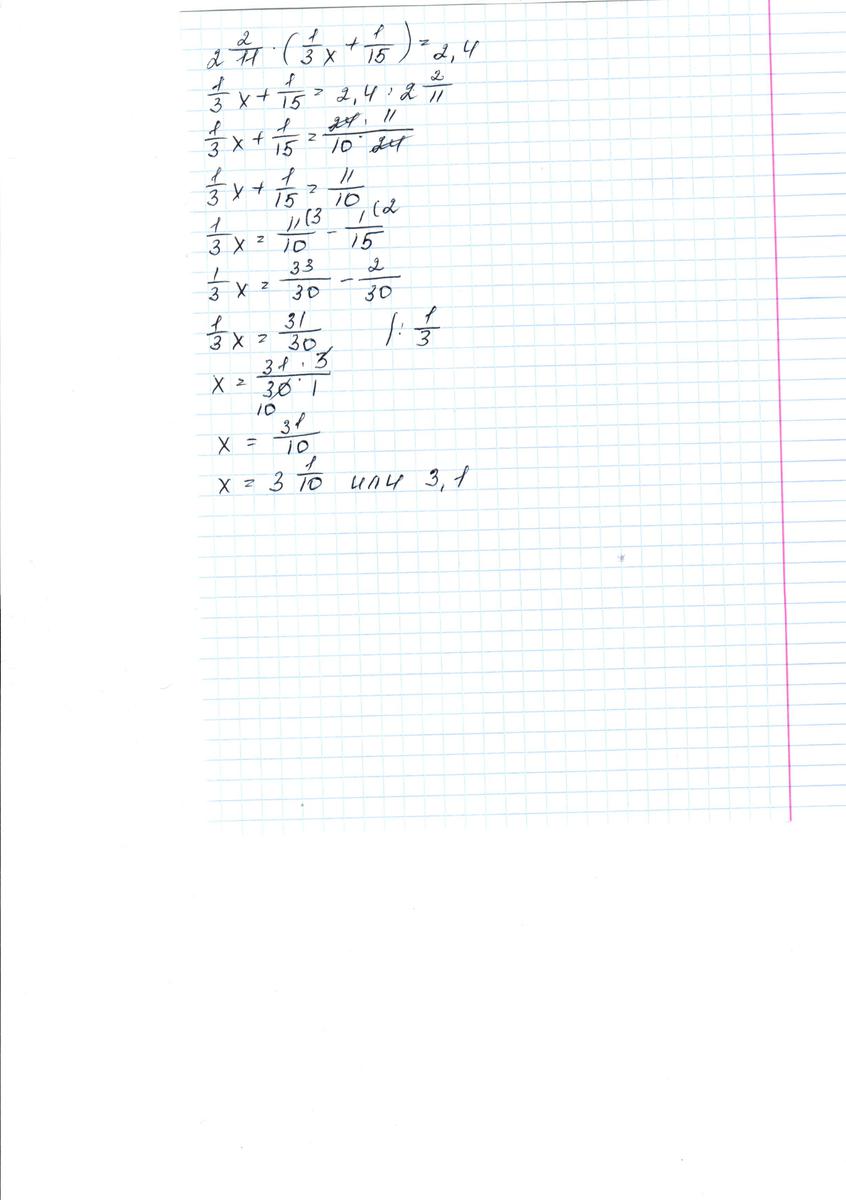 2 2/11 · (1/3 x + 1/15) = 2,4
1/3 x + 1/15 = 2,4 : 2 2/11
1/3 x + 1/15 = 24 · 11 / 10 · 24
1/3 x + 1/15 = 11/10
1/3 x = 11(3/10 - 1(2/15
1/3 x = 33/30 - 2/30
1/3 x = 31/30 | : 1/3
x = 31 · 3 / 30 · 1
10
x = 31/10
x = 3 1/10 или 3,1